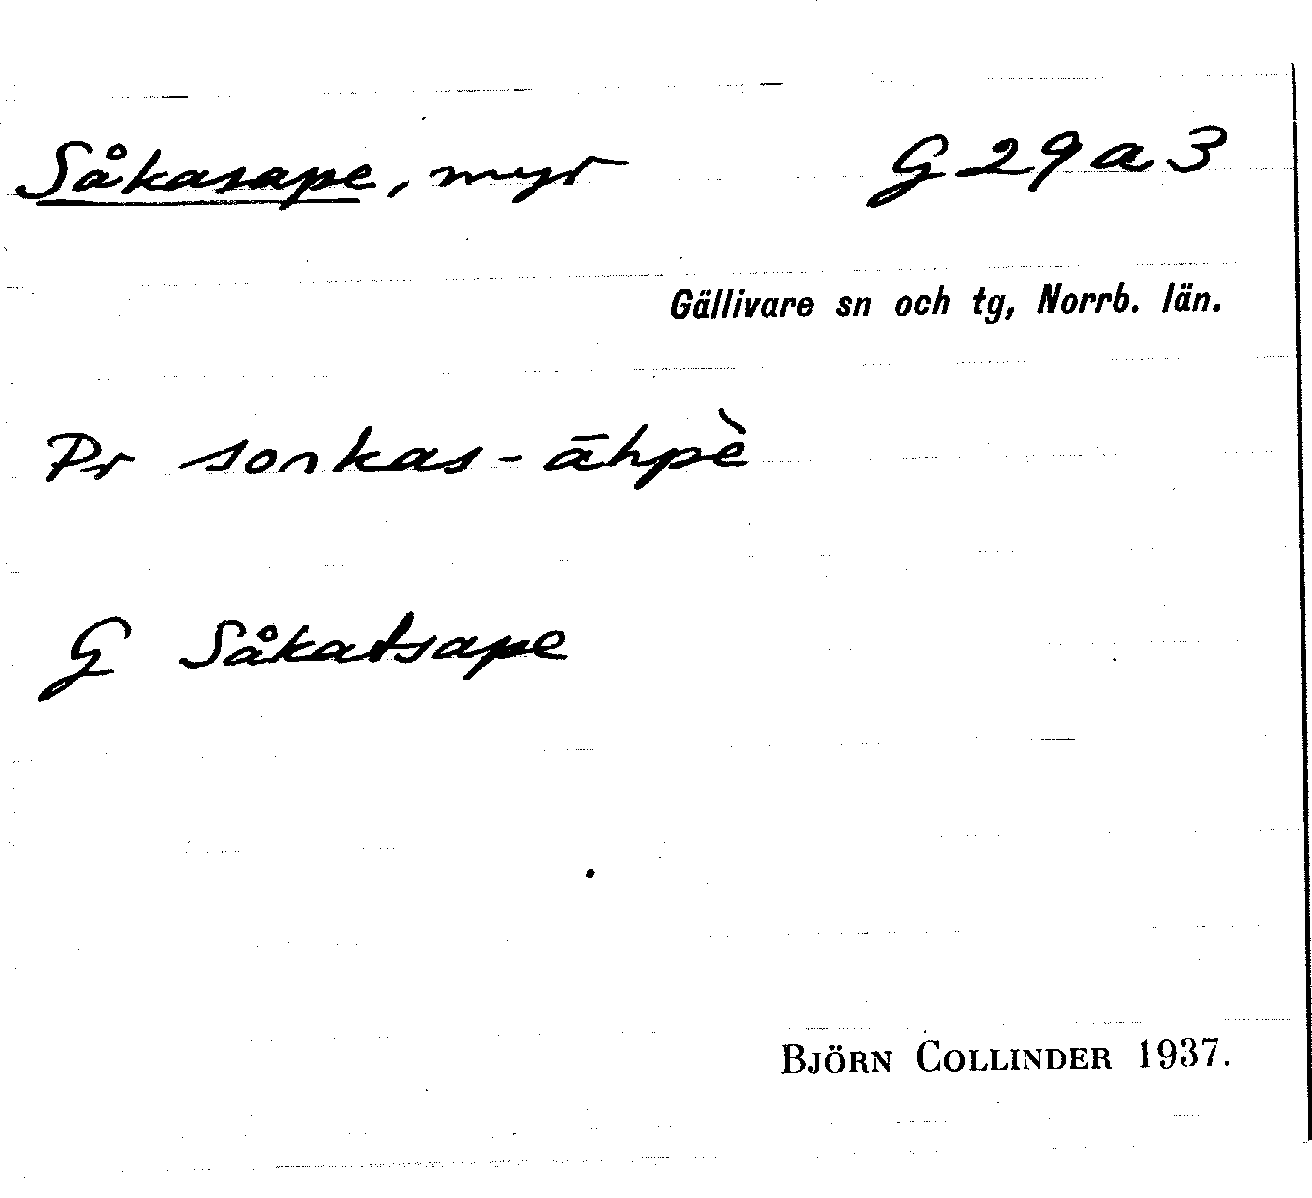 Såkasape, myr G 29 a 3
Gällivare sn och tg, Norrb. län.
Pr sonkas-āhpè
G Såkatsape
BJÖRN COLLINDER 1937.